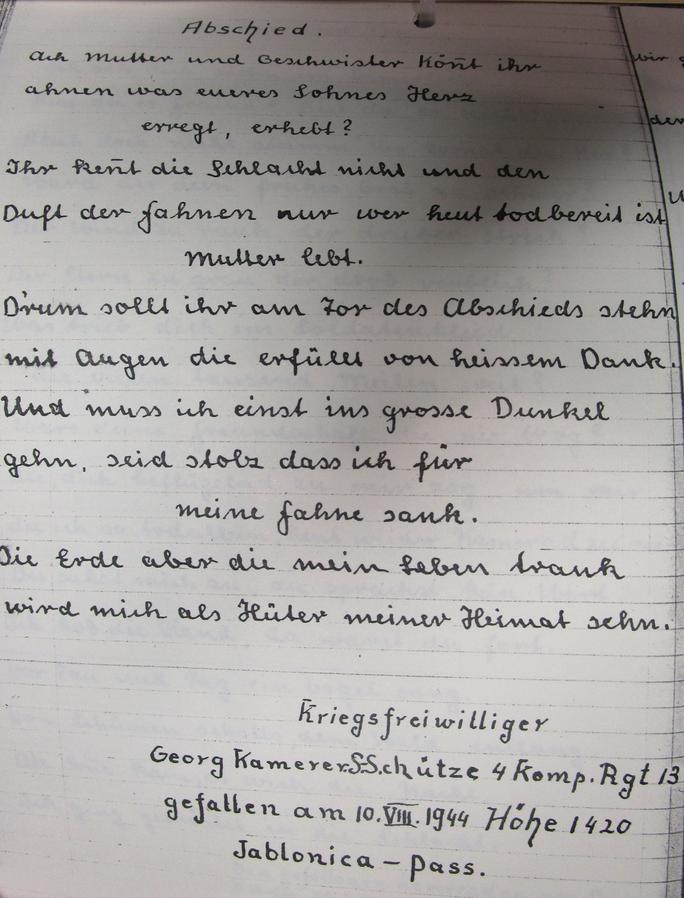 Abschied.
Ach Mutter und Geschwister Kön̄t ihr
ahnen was eueres Sohnes Herz
erregt, erhebt?
Ihr ken̄t die Schlacht nicht und den
Duft der Fahnen nur wer heut todbereit ist
Mutter lebt.
D'rum sollt ihr am Tor des Abschieds stehn
mit Augen die erfüllt von heissem Dank.
Und muss ich einst ins grosse Dunkel
gehn, seid stolz dass ich für
meine Fahne sank.
Die Erde aber die mein Leben trank
wird mich als Hüter meiner Heimat sehn.
Kriegsfreiwilliger
Georg Kamerer SSchütze 4 Komp. Rgt 13
gefallen am 10.VIII.1944 Höhe 1420
Jablonica – Pass.
wir
der